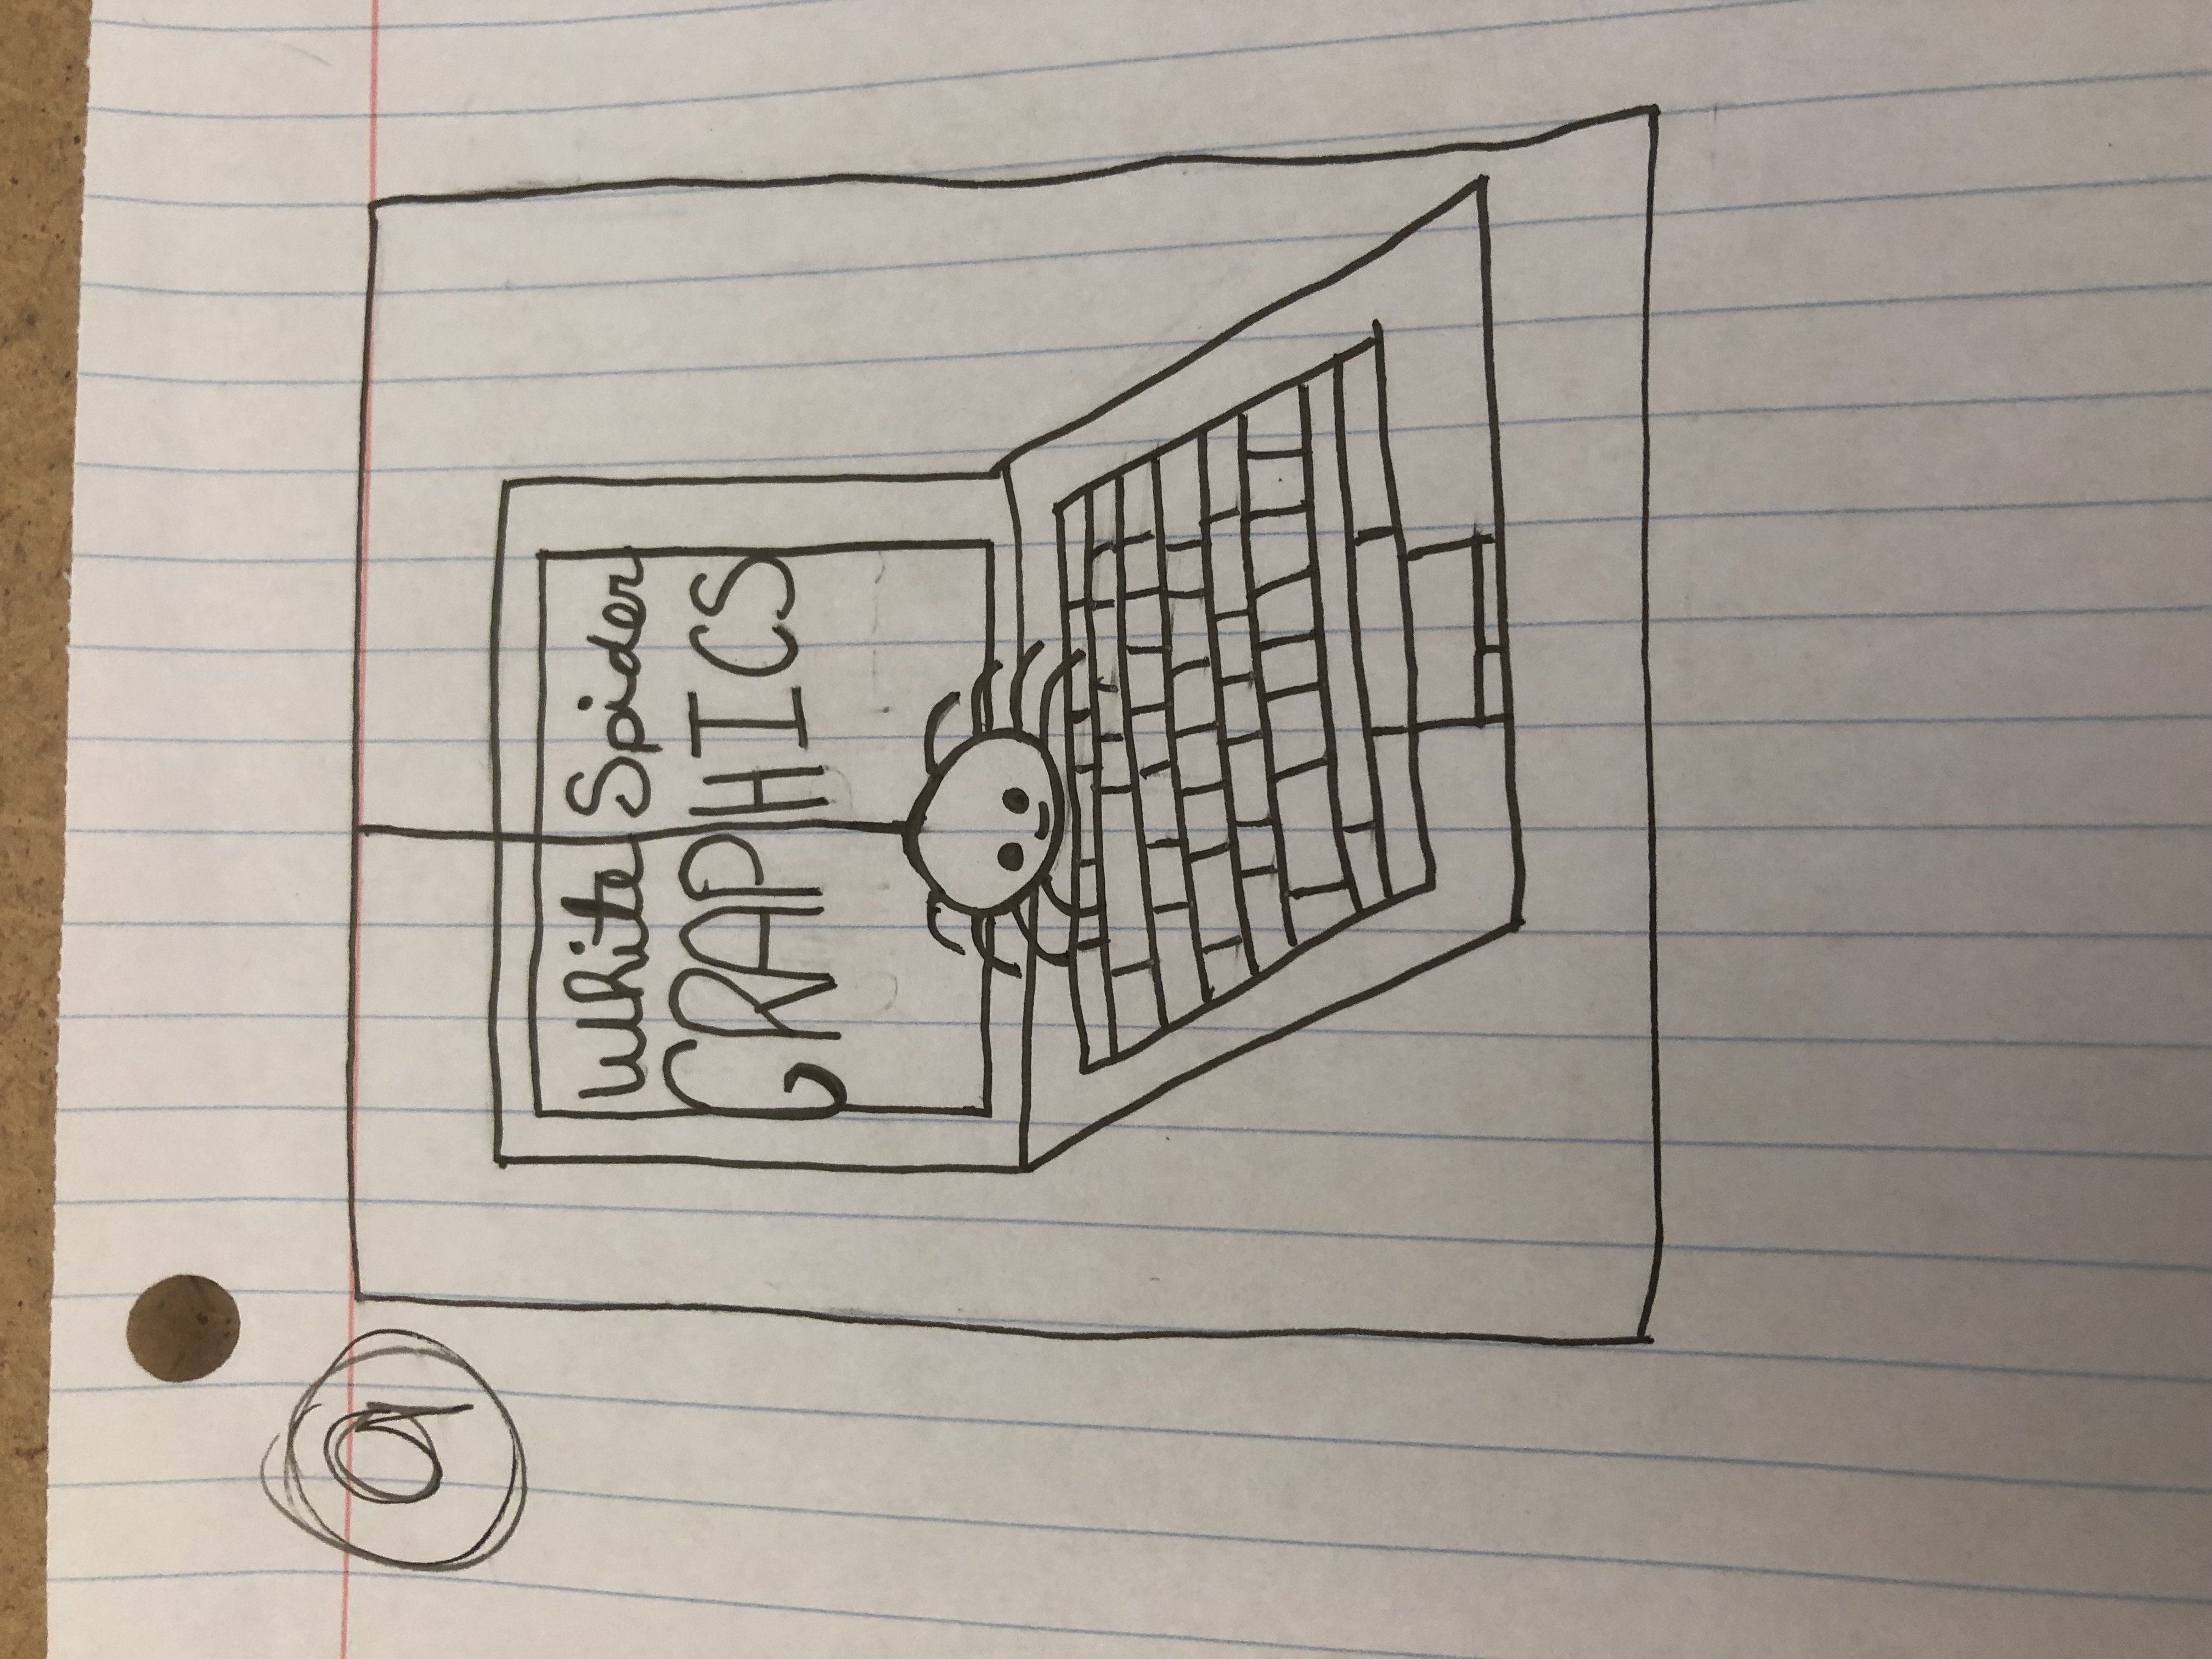 9
White Spider
GRAPHICS